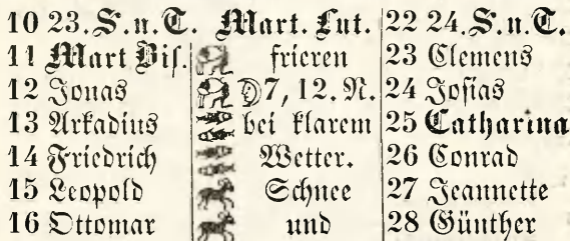 10 23. S. n. T. Mart. Lut. 22 24. S. n. T.
11 Mart Bis. frieren 23 Clemens
12 Jonas 7, 12. N. 24 Josias
13 Arkadius bei klarem 25 Catharina
14 Friedrich Wetter. 26 Conrad
15 Leopold Schnee 27 Jeannette
16 Ottomar und 28 Günther